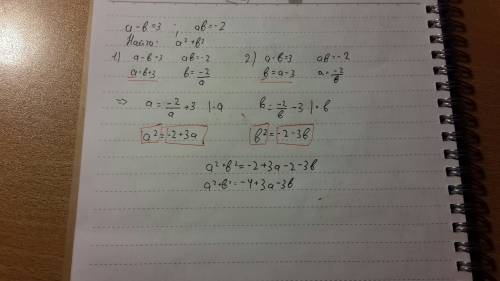 a-b=3 ; ab=-2
Найти: a²+b²
1) a-b=3 ab=-2 2) a-b=3 ab=-2
a=b+3 b=-2/a b=a-3 a=-2/b
⇒ a=-2/a+3 |·a b=-2/b-3 |·b
a²=-2+3a b²=-2-3b
a²+b²=-2+3a-2-3b
a²+b²=-4+3a-3b